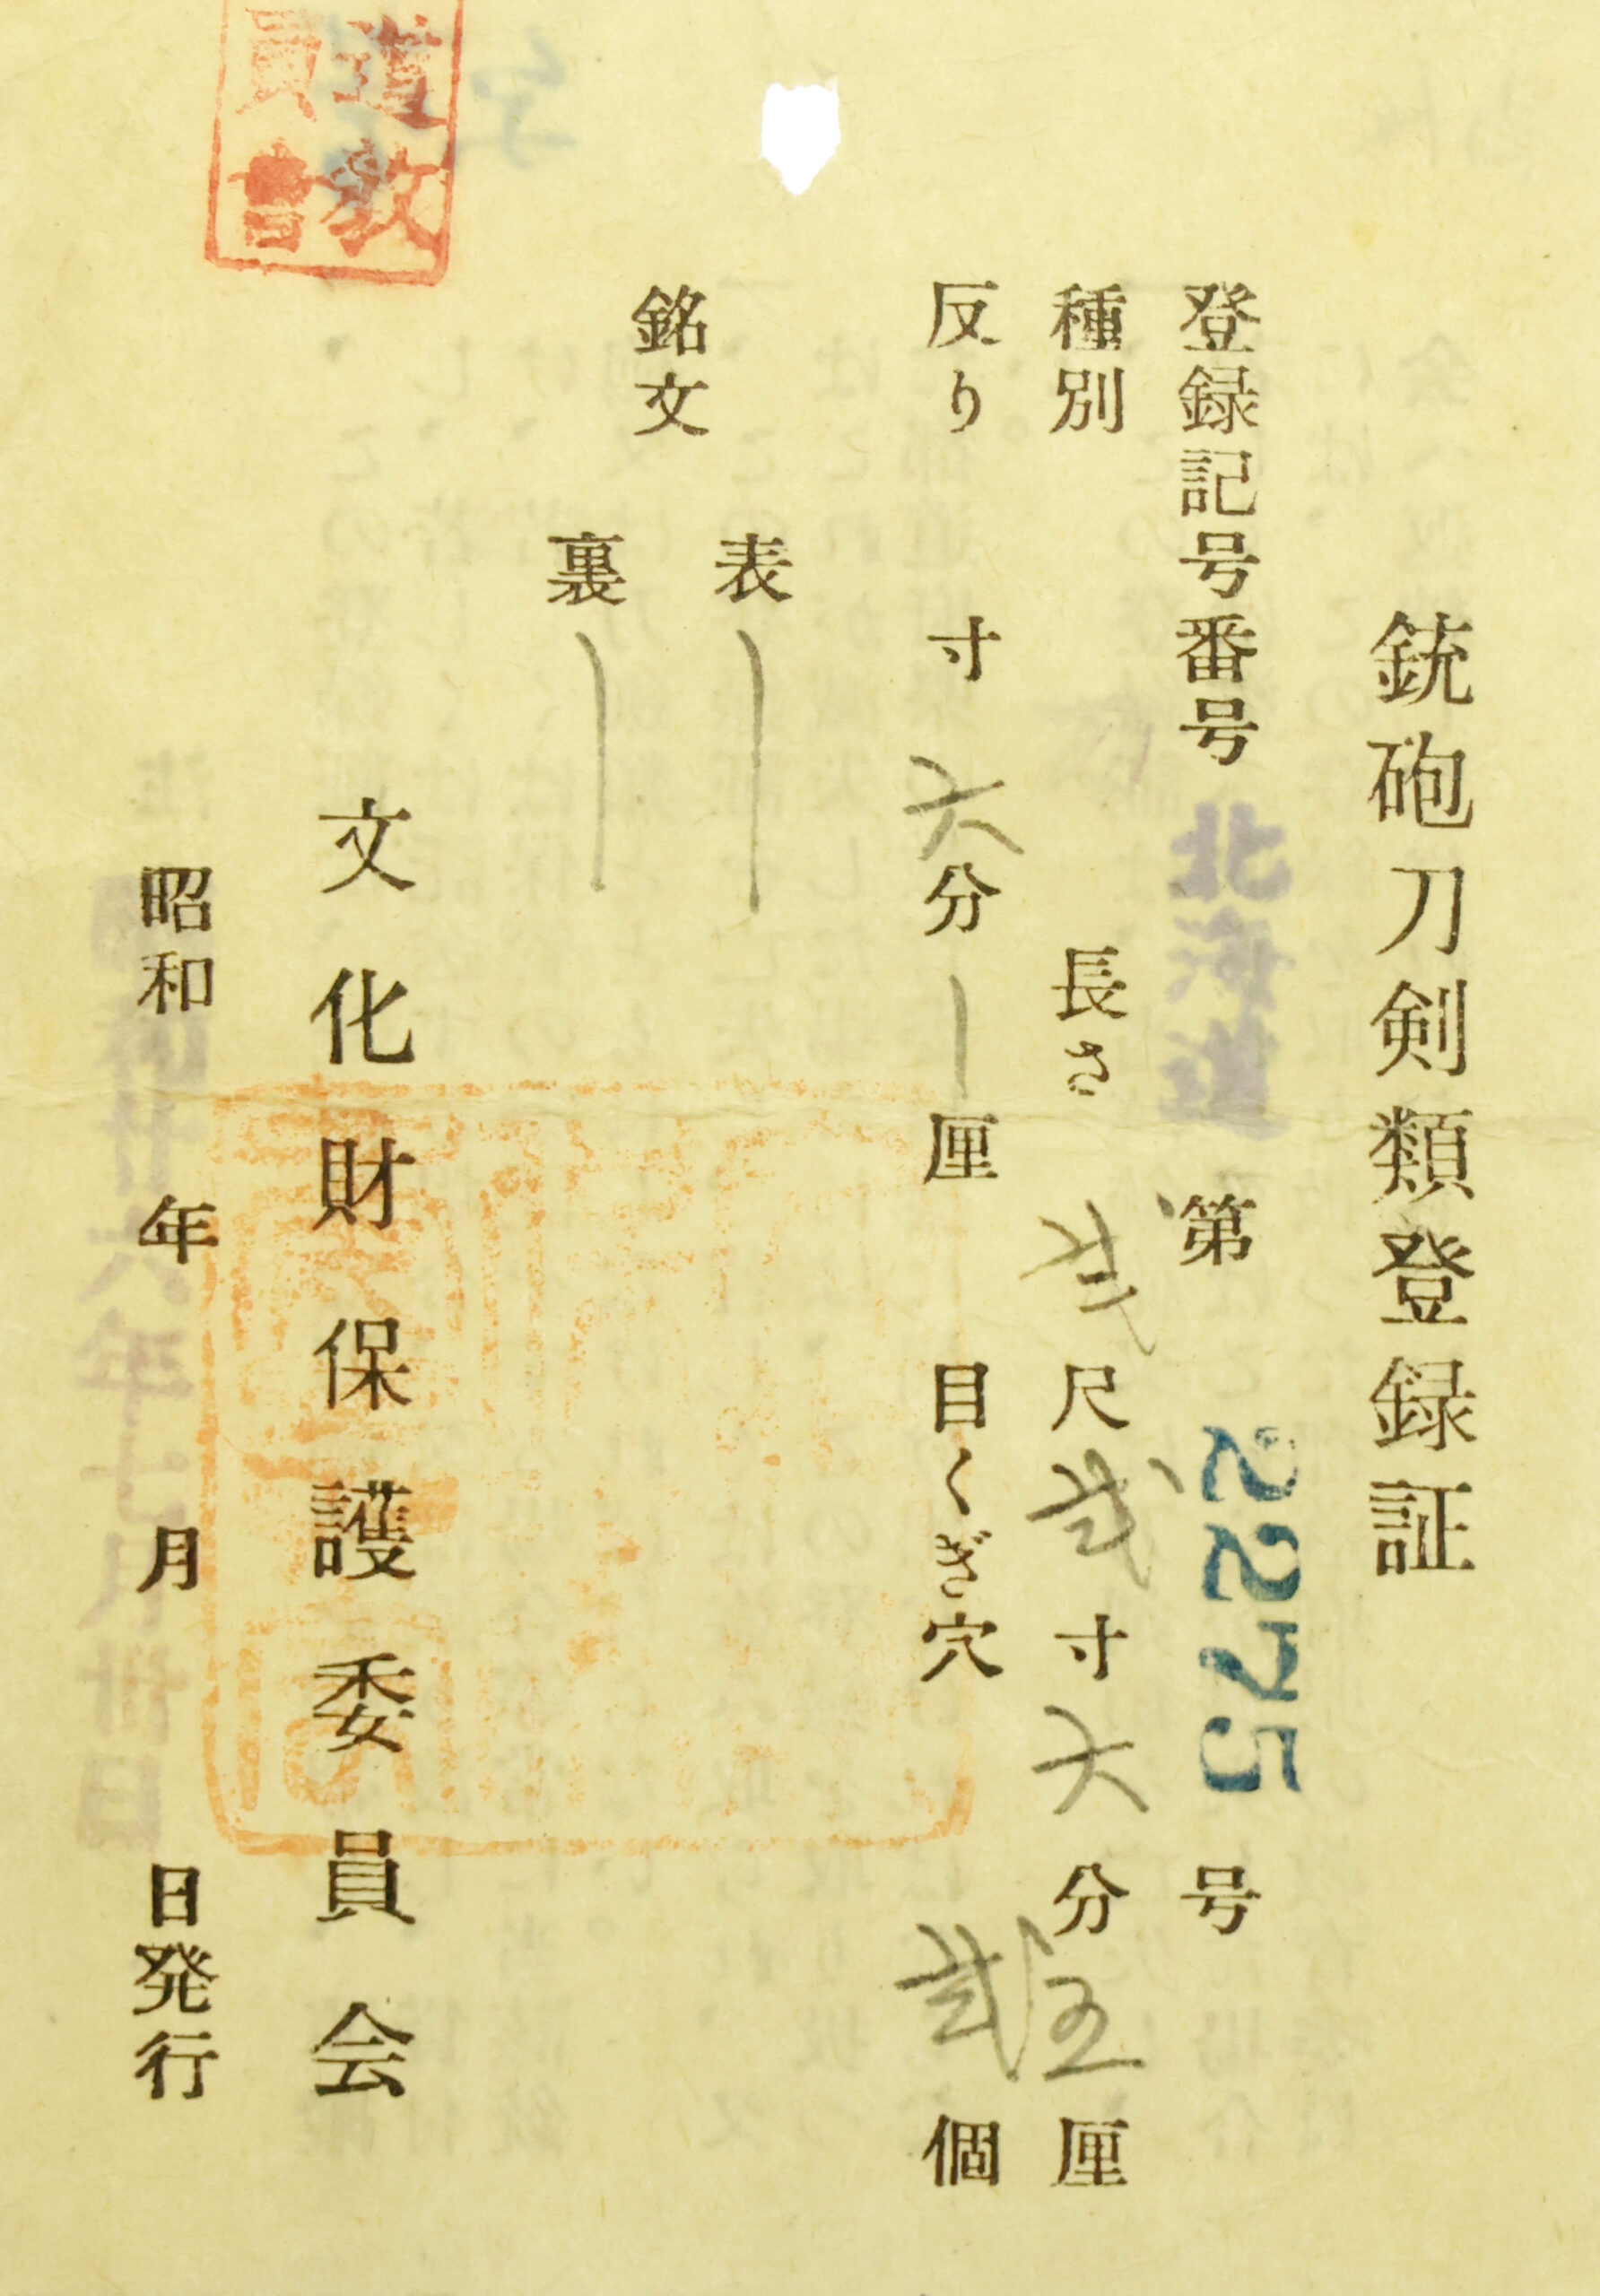 銃砲刀剣類登録証
登録記号番号 北海道 第 2275 号
種別 長さ 弐尺弐寸六分五厘
反り 寸六分厘 目くぎ穴 弐個
銘文
表
裏
文化財保護委員会
昭和 年 月 日発行
道教
員